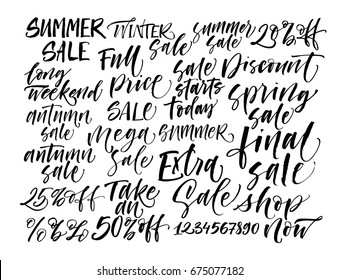 SUMMER SALE
WINTER sale
summer sale
20% off
long weekend
Full price
sale starts today
Discount
autumn sale
SALE
spring sale
mega sale
SUMMER
final sale
autumn sale
Extra Sale
25% off
Take an
shop now
%%%
50% off
1234567890
shutterstock.com · 675077182